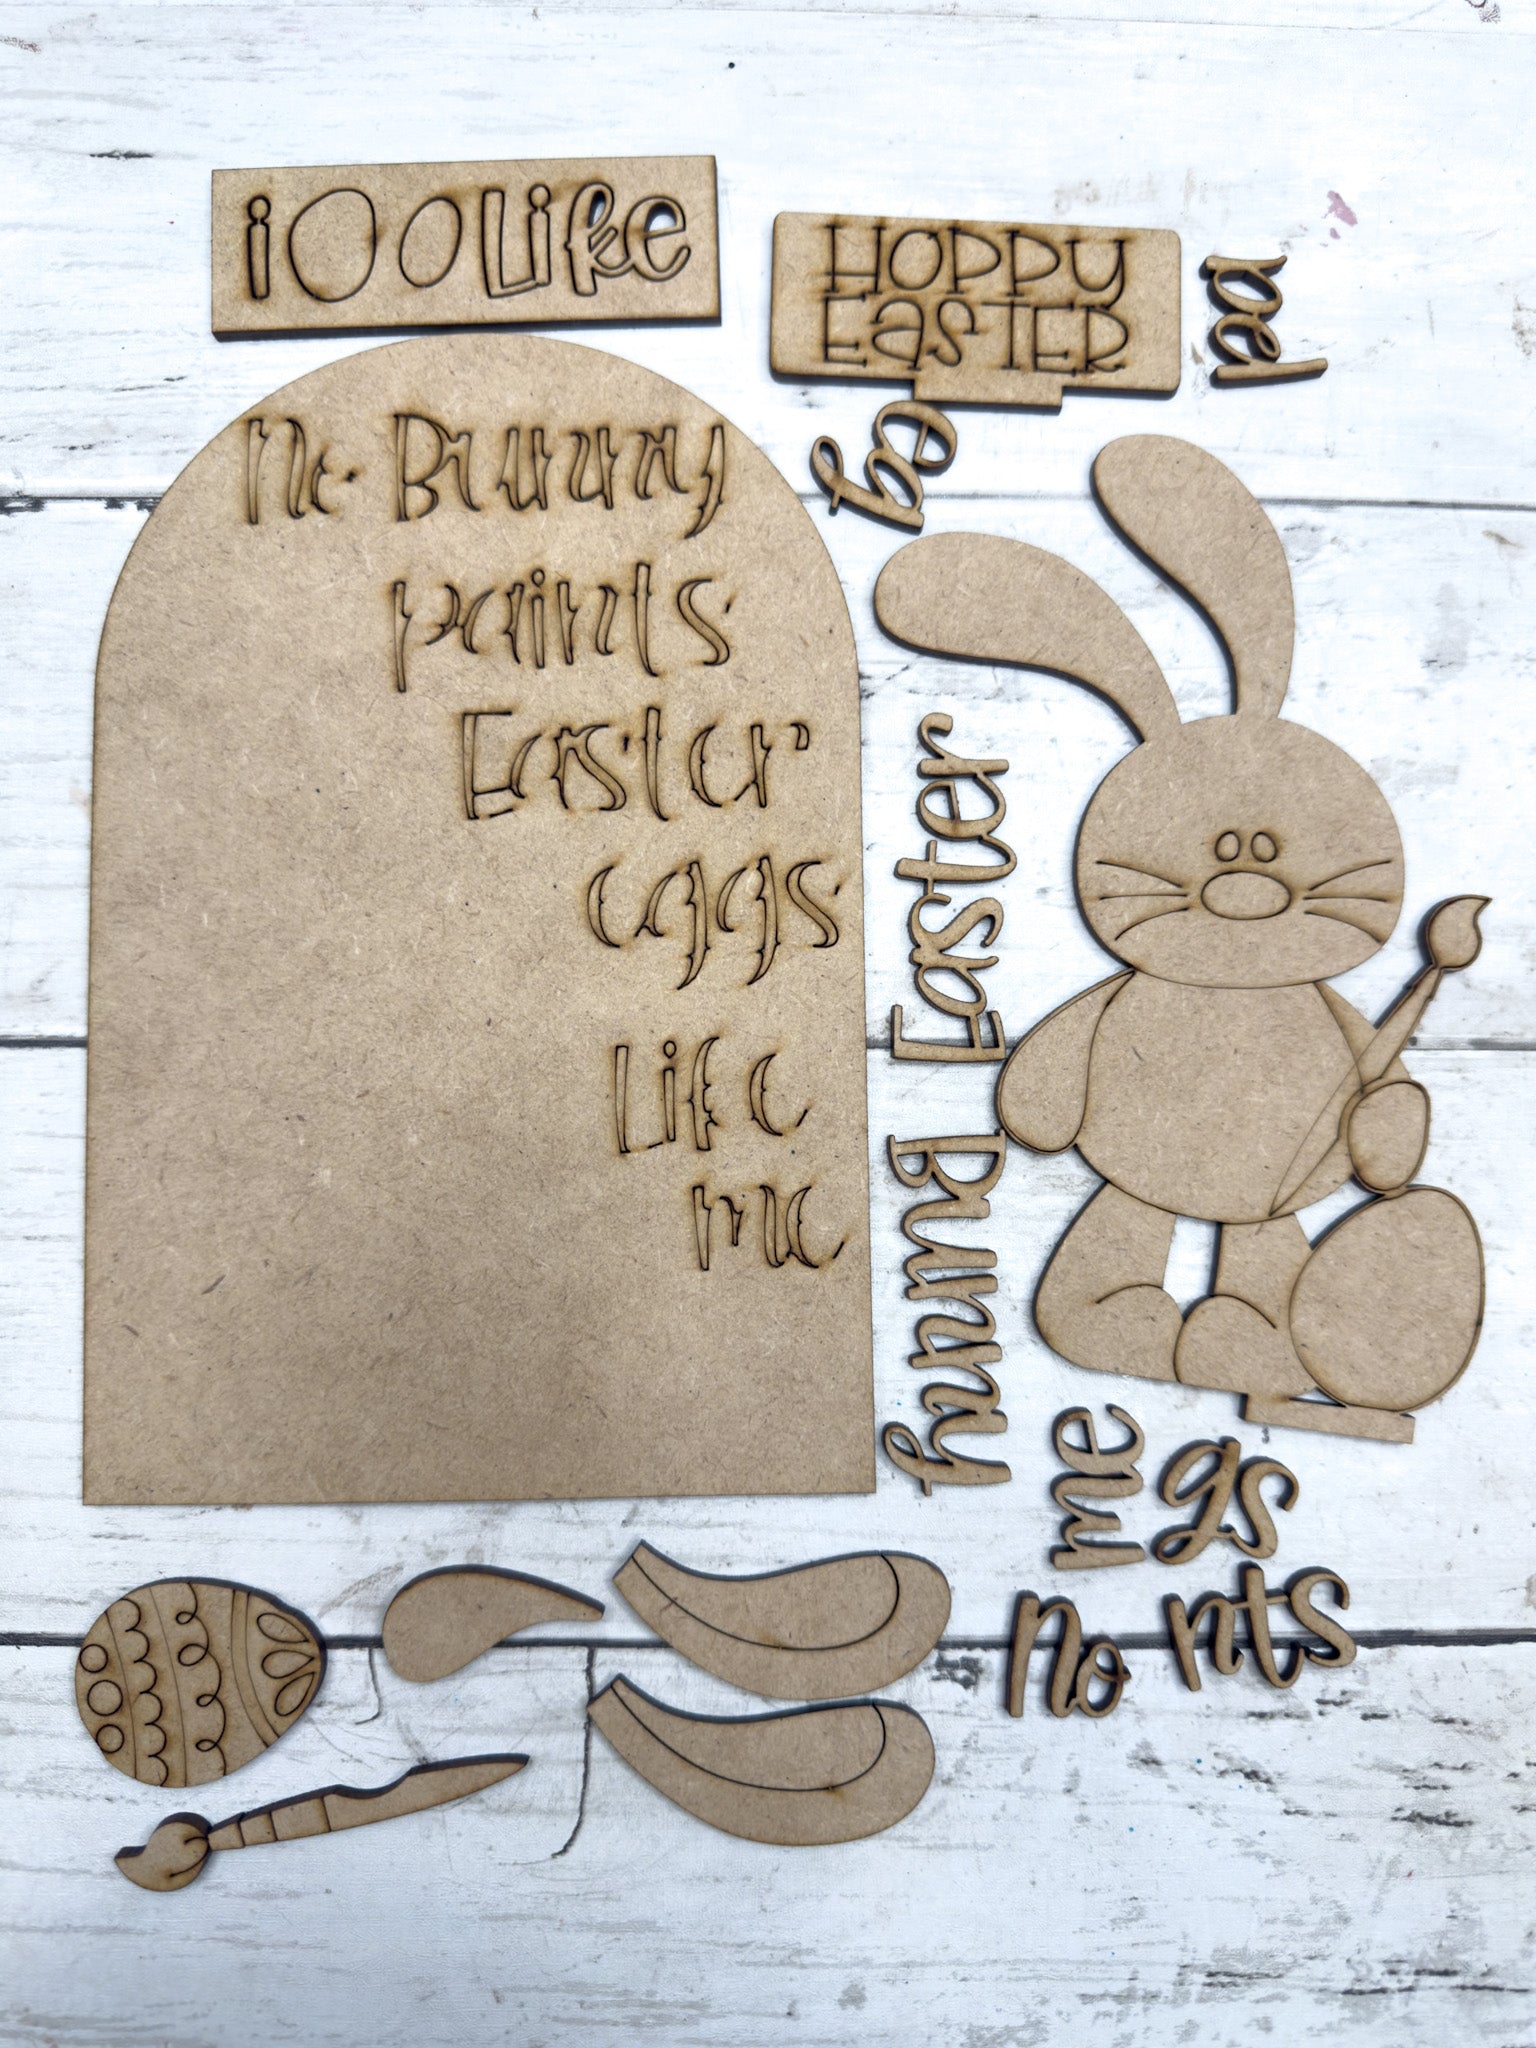 i Like
HOPPY
EASTER
pa
eg
No Bunny
paints
Easter
eggs
Like
me
Easter
Bunny
me
gs
No
nts